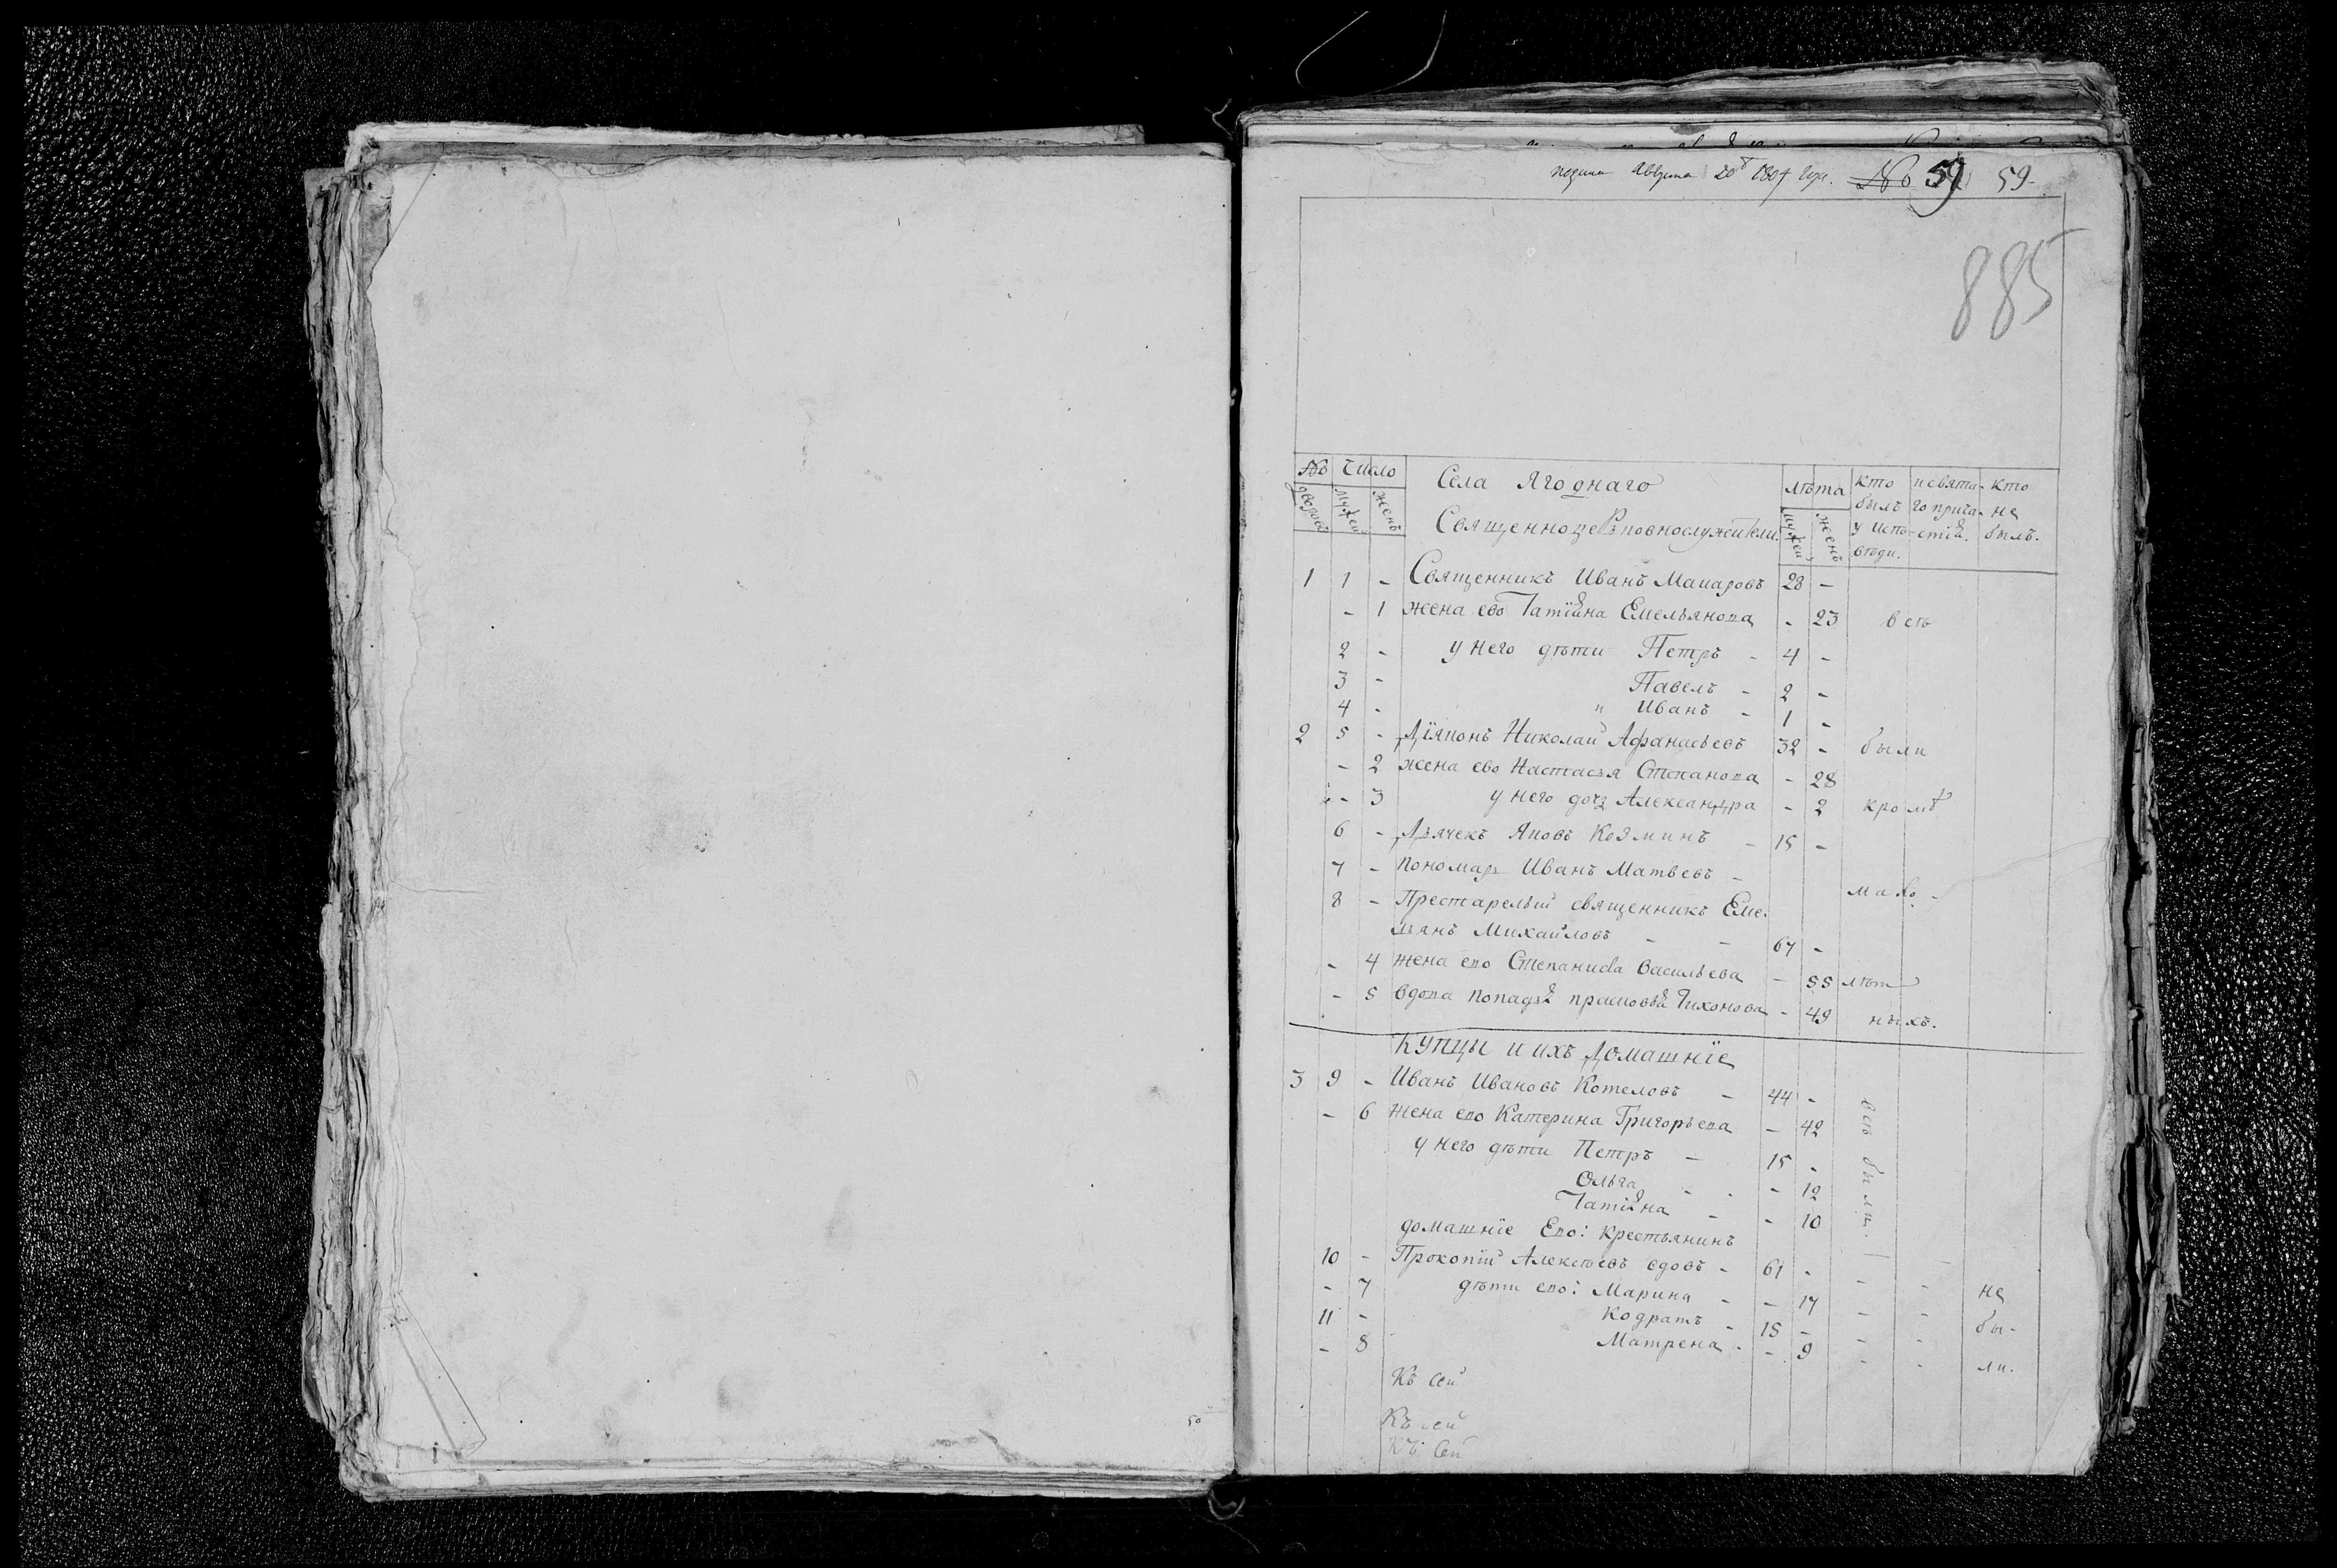 Августа 20 1807 года. № 59 59.
885
№ Число Села Ягоднаго лѣта кто и свята- кто
дворовъ мужеи женъ Священноцерковнослужители. мужеи женъ былъ го прича- не
у испо- стія. былъ.
вѣди.
1 1 - Священникъ Иванъ Макаровъ 28 -
- 1 жена ево Татіяна Емельянова - 23 всѣ
2 - у него дѣти Петръ - 4 -
3 - Павелъ - 2 -
4 - " Иванъ - 1 -
2 5 - Діяконъ Николаи Афанасьевъ 32 - были
- 2 жена ево Настасья Степанова - 28
- 3 у него дочь Александра - 2 кромѣ
6 - Дьячекъ Яковъ Козминъ - 15 -
7 - пономарь Иванъ Матвеевъ -
мало-
8 - Престарелыи священникъ Еме-
льянъ Михаиловъ - - 67 -
- 4 жена ево Степанида Васильева - 55 лѣт
- 5 вдова попадья Тихонова - 49 ныхъ.
Купцы и ихъ Домашніе
3 9 - Иванъ Ивановъ Котеловъ - 44 - всѣ были.
- 6 жена ево Катерина Григорьева - 42
у него дѣти Петръ - 15 -
Ольга - - - 12
Татіяна - - 10
домашніе Ево: крестьянинъ
10 - Прокопіи Алексѣевъ вдовъ - 61 - - - не
- 7 дѣти ево: Марина - - 17 - - бы-
11 - Кодратъ - 15 - - - ли.
- 8 Матрена - - 9 - -
Къ сеи
Къ сеи
Къ сеи
50